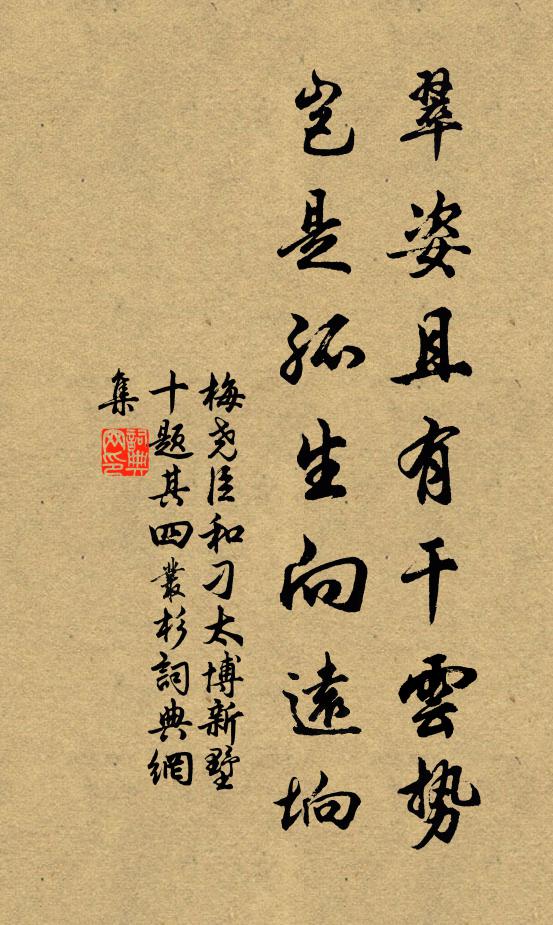 翠姿且有干雲势
岂是孤生向遠坰
梅尧臣和刁太博新墅
十题其四叢杉詞典網
集
詞典網印